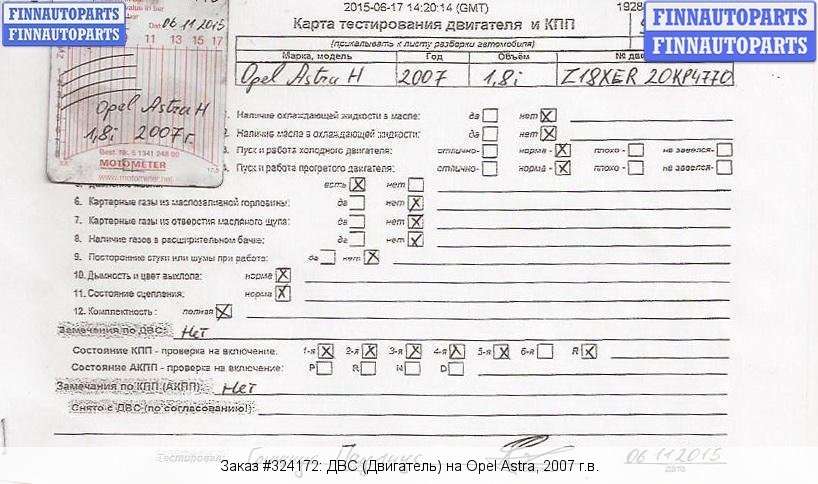 2015-06-17 14:20:14 (GMT)
1928
FINNAUTOPARTS
FINNAUTOPARTS
FINNAUTOPARTS
FINNAUTOPARTS
FINNAUTOPARTS
Карта тестирования двигателя и КПП
(прикалывать к листу разборки автомобиля)
Марка, модель Год Объём № дв
Opel Astra H 2007 1,8i Z18XER 20KP4770
value in bar
Dat 06 11 2015
11 13 15 17
Opel Astra H
1,8i 2007г.
Best. Nr. 5 1341 248 00
MOTOMETER
www.motometer.net
Наличие охлаждающей жидкости в масле: да нет X
Наличие масла в охлаждающей жидкости: да нет X
3. Пуск и работа холодного двигателя: отлично- норма - X плохо - не завелся-
Пуск и работа прогретого двигателя: отлично- норма - X плохо - не завелся-
есть X нет
6. Картерные газы из маслозаливной горловины: да нет X
7. Картерные газы из отверстия масляного щупа: да нет X
8. Наличие газов в расширительном бачке: да нет X
9. Посторонние стуки или шумы при работе: да нет X
10. Дымность и цвет выхлопа: норма X
11. Состояние сцепления: норма X
12. Комплектность : полная X
Замечения по ДВС: Нет
Состояние КПП - проверка на включение: 1-я X 2-я X 3-я X 4-я X 5-я X 6-я R X
Состояние АКПП - проверка на включение: P R N D
Замечания по КПП (АКПП): Нет
Снято с ДВС (по согласованию!):
Тестировал: 06.11.2015
дата
Заказ #324172: ДВС (Двигатель) на Opel Astra, 2007 г.в.